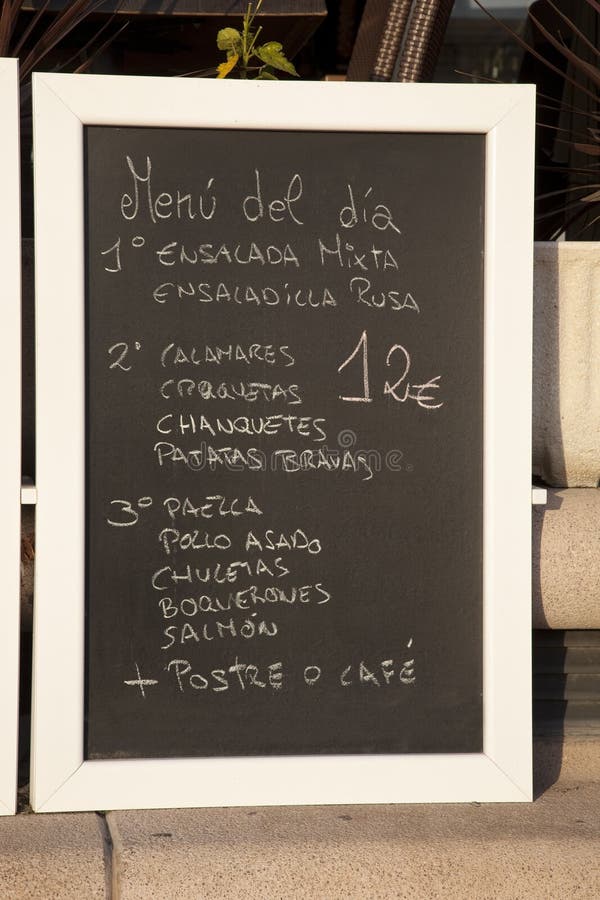 Menú del día
1º ENSALADA MIXTA
ENSALADILLA RUSA
2º CALAMARES
12€
CROQUETAS
CHANQUETES
PATATAS BRAVAS
3º PAELLA
POLLO ASADO
CHULETAS
BOQUERONES
SALMÓN
+ POSTRE O CAFÉ
dreamstime.com